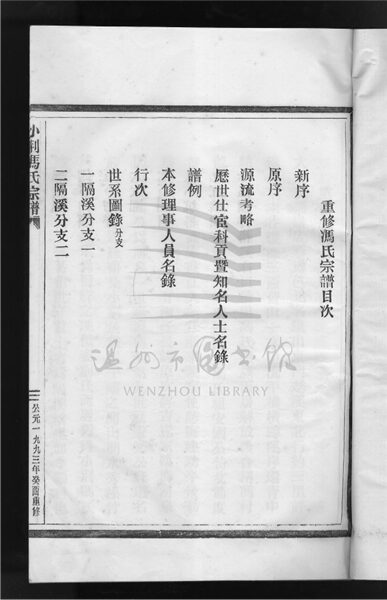 重修馮氏宗譜目次
新序
原序
源流考略
歷世仕宦科貢暨知名人士名錄
譜例
本修理事人員名錄
行次
世系圖錄分支
一隔溪分支一
二隔溪分支二
馮氏宗譜
公元一九九三年癸酉重修
溫州市圖書館
WENZHOU LIBRARY